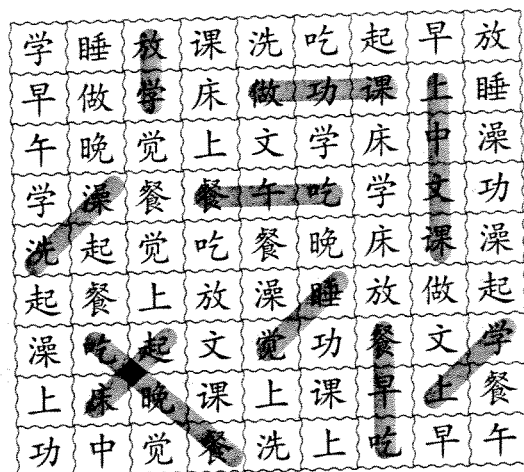 学睡放课洗吃起早放
早做学床做功课上睡
午晚觉上文学床中澡
学澡餐餐午吃学文功
洗起觉吃餐晚床课澡
起餐上放澡睡放做起
澡吃起文觉功餐文学
上床晚课上课早上餐
功中觉餐洗上吃早午